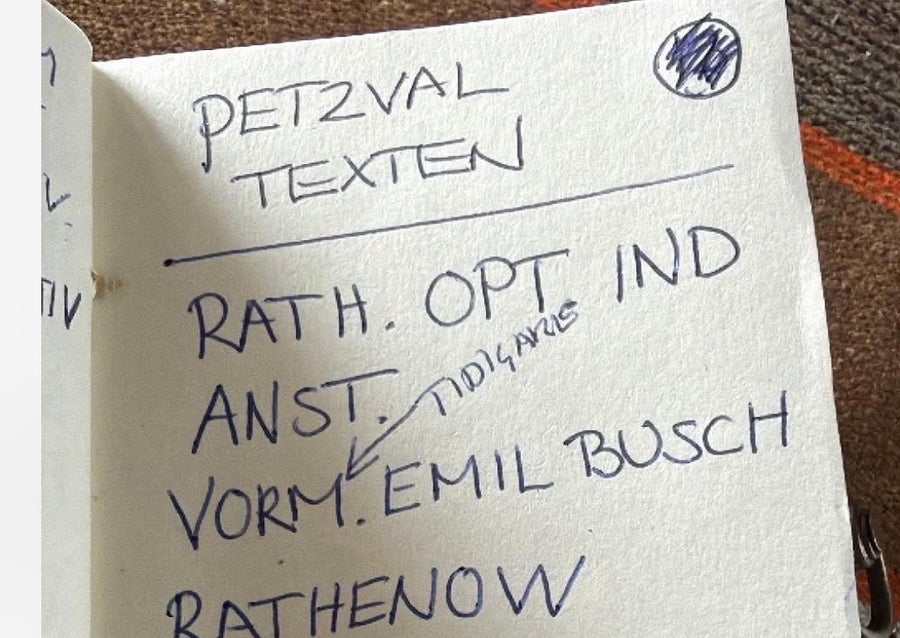 PETZVAL
TEXTEN
RATH. OPT. IND
ANST.
TIDIGARE
VORM. EMIL BUSCH
RATHENOW